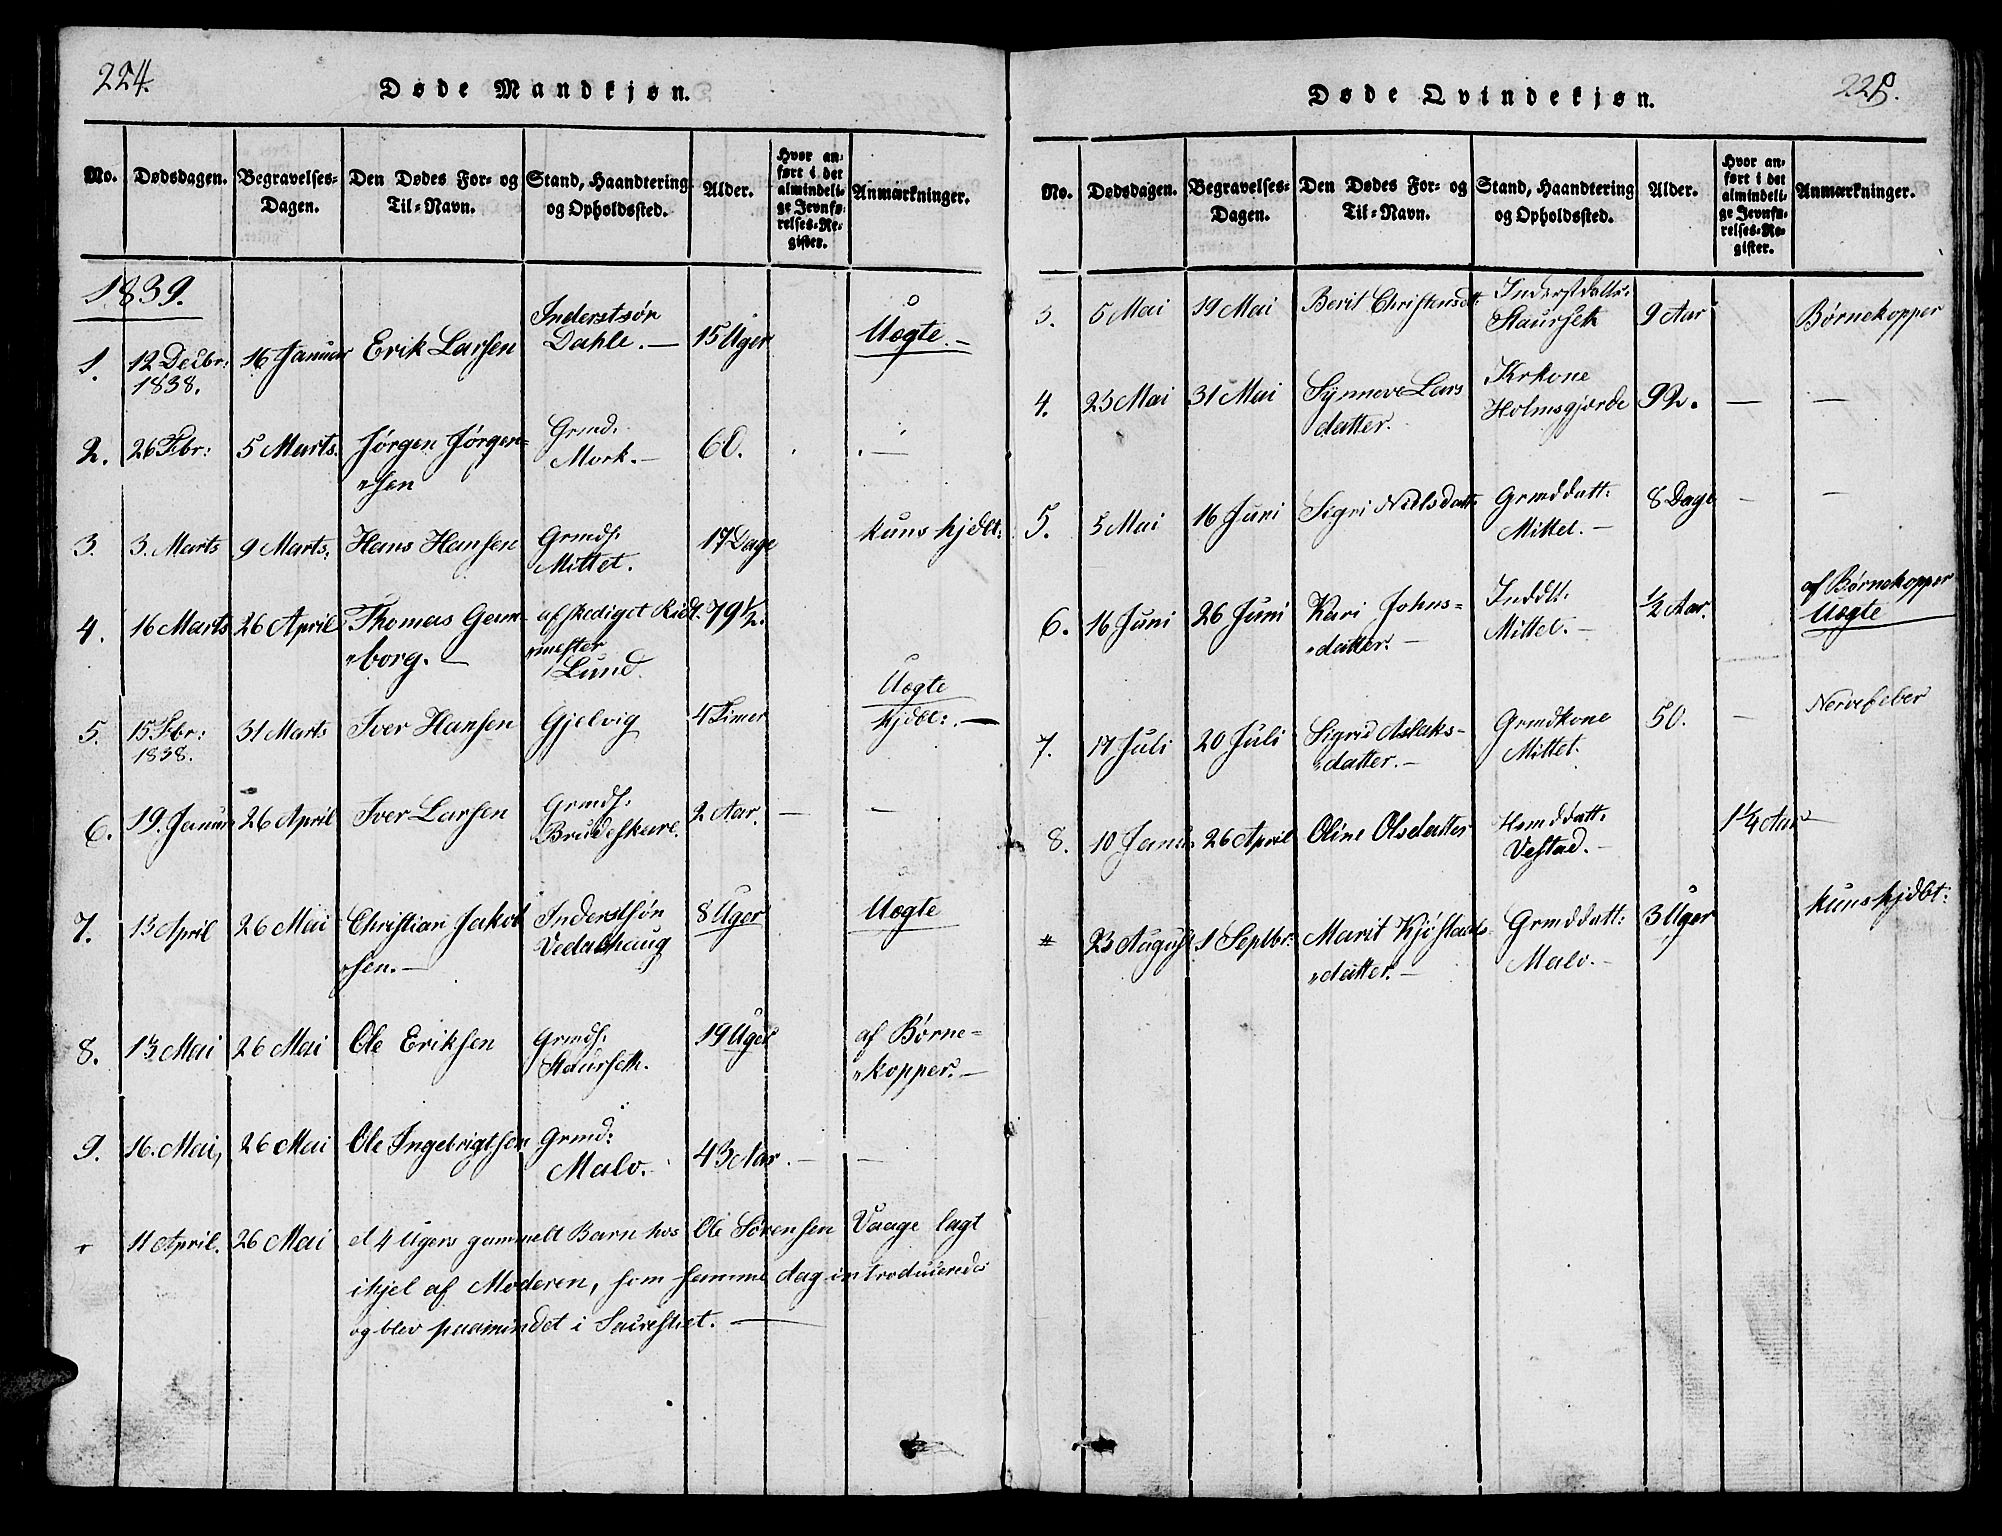 224.
Døde Mandkjøn.
No. Dødsdagen. Begravelses-Dagen. Den Dødes For- og Til-Navn. Stand, Haandtering og Opholdssted. Alder. Hvor anført i det almindelige Jevnførelses-Register. Anmærkninger.
1839.
1. 12 Decbr: 1838. 16 Januar Erik Larsen Inderstsøn Dahle. — 15 Uger Uægte. —
2. 26 Fbr: 5 Marts. Jørgen Jørgen= "sen Grmd: Mork. — 60. —
3. 3. Marts 9 Marts. Hans Hansen Grmds: Mittet. 17 Dage kuns hjdbt:
4. 16 Marts 26 April Thomas Gam= "borg. — afskediget Ridt. "mester Lund. 79 1/2.
5. 15 Fbr: 1838. 31 Marts Iver Hansen Gjelvig 4 Timer Uægte hjdbt: —
6. 19. Januar 26 April Iver Larsen Grmds: Brudeskare. 2 Aar. — —
7. 13 April 26 Mai Christian Jakob "sen. — Inderstsøn Vedalhaug 8 Uger Uægte
8. 13 Mai 26 Mai Ole Eriksen Grmds: Staurseth. 19 Uger af Børne= "kopper. —
9. 16. Mai, 26 Mai Ole Ingebrigtsen Grmd: Malv. 43 Aar. — —
11 April. 26 Mai et 4 Ugers gammelt Barn hos Ole Sørensen Vaage lagt
ihjel af Moderen, som samme dag introduceredes
og blev paamindet i Sacrestiet. —
225.
Døde Qvindekjøn.
No. Dødsdagen. Begravelses-Dagen. Den Dødes For- og Til-Navn. Stand, Haandtering og Opholdssted. Alder. Hvor anført i det almindelige Jevnførelses-Register. Anmærkninger.
3. 5 Mai 19 Mai Berit Christensdt: Inderstdatter: Staurseth 9 Aar Børnekopper
4. 23 Mai 31 Mai Synneve Lars datter. Kone Holmsgjærde 92. — —
5. 5 Mai 16 Juni Sigri Nielsdatt: Grmddatt: Mittet. — 8 Dage — —
6. 16 Juni 26 Juni Kari Johns= "datter. — Inddt: Mittet. — 1/2 Aar. af Børnekopper Uægte
7. 17 Juli 20 Juli Sigrid Aslaks= "datter. — Grmdkone Mittet. 50. — Nervefeber
8. 10 Januar 26 April Oline Olsdatter Grmddatt: Vestad. — 1 1/4 Aar —
23 August 1 Septbr: Marit Kjøstads= "datter. — Grmddatt: Malv. — 3 Uger kuns hjdbt: